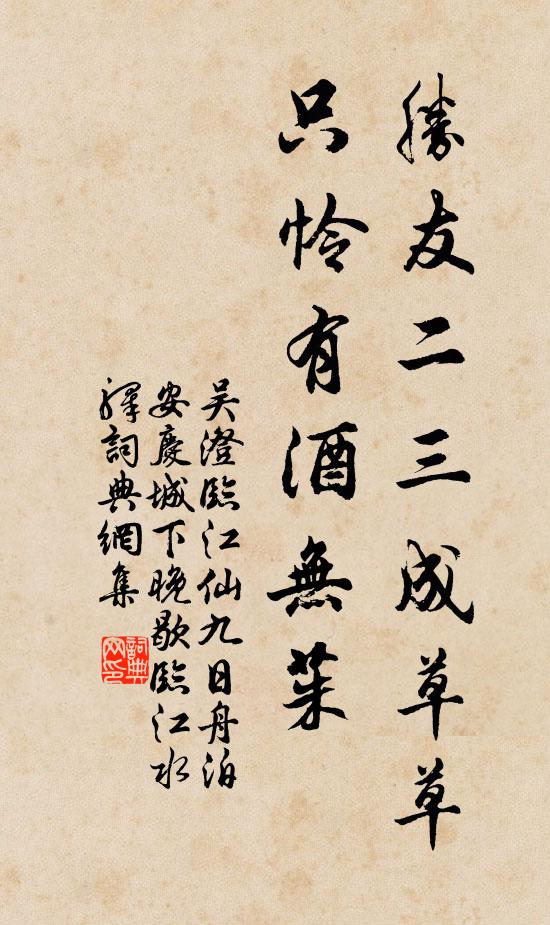 勝友二三成草草
只怜有酒無茱
吴澄臨江仙九日舟泊
安慶城下晚歇臨江水
驛詞典網集
詞典
网印